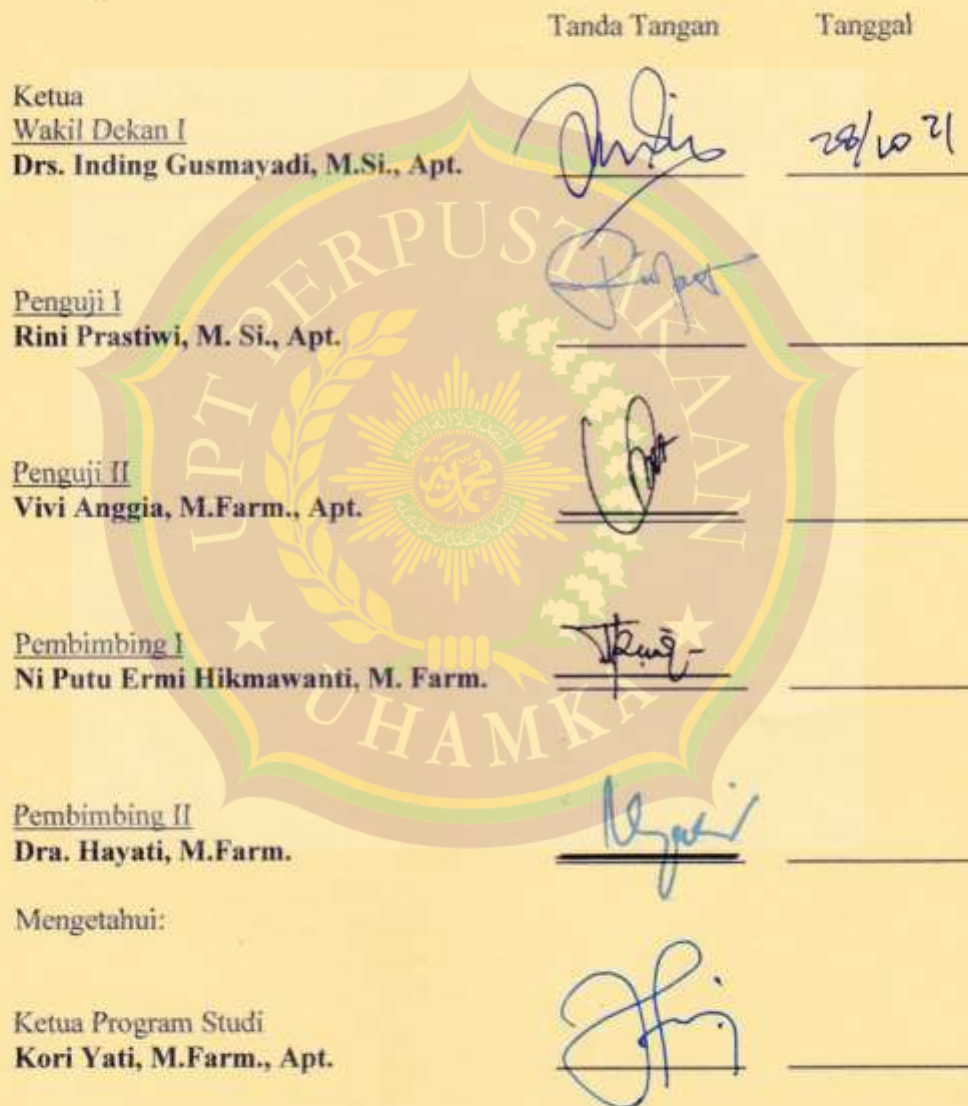 Tanda Tangan Tanggal
Ketua
Wakil Dekan I
Drs. Inding Gusmayadi, M.Si., Apt.
28/10 21
Penguji I
Rini Prastiwi, M. Si., Apt.
Penguji II
Vivi Anggia, M.Farm., Apt.
Pembimbing I
Ni Putu Ermi Hikmawanti, M. Farm.
Pembimbing II
Dra. Hayati, M.Farm.
Mengetahui:
Ketua Program Studi
Kori Yati, M.Farm., Apt.
UPT PERPUSTAKAAN
UHAMKA